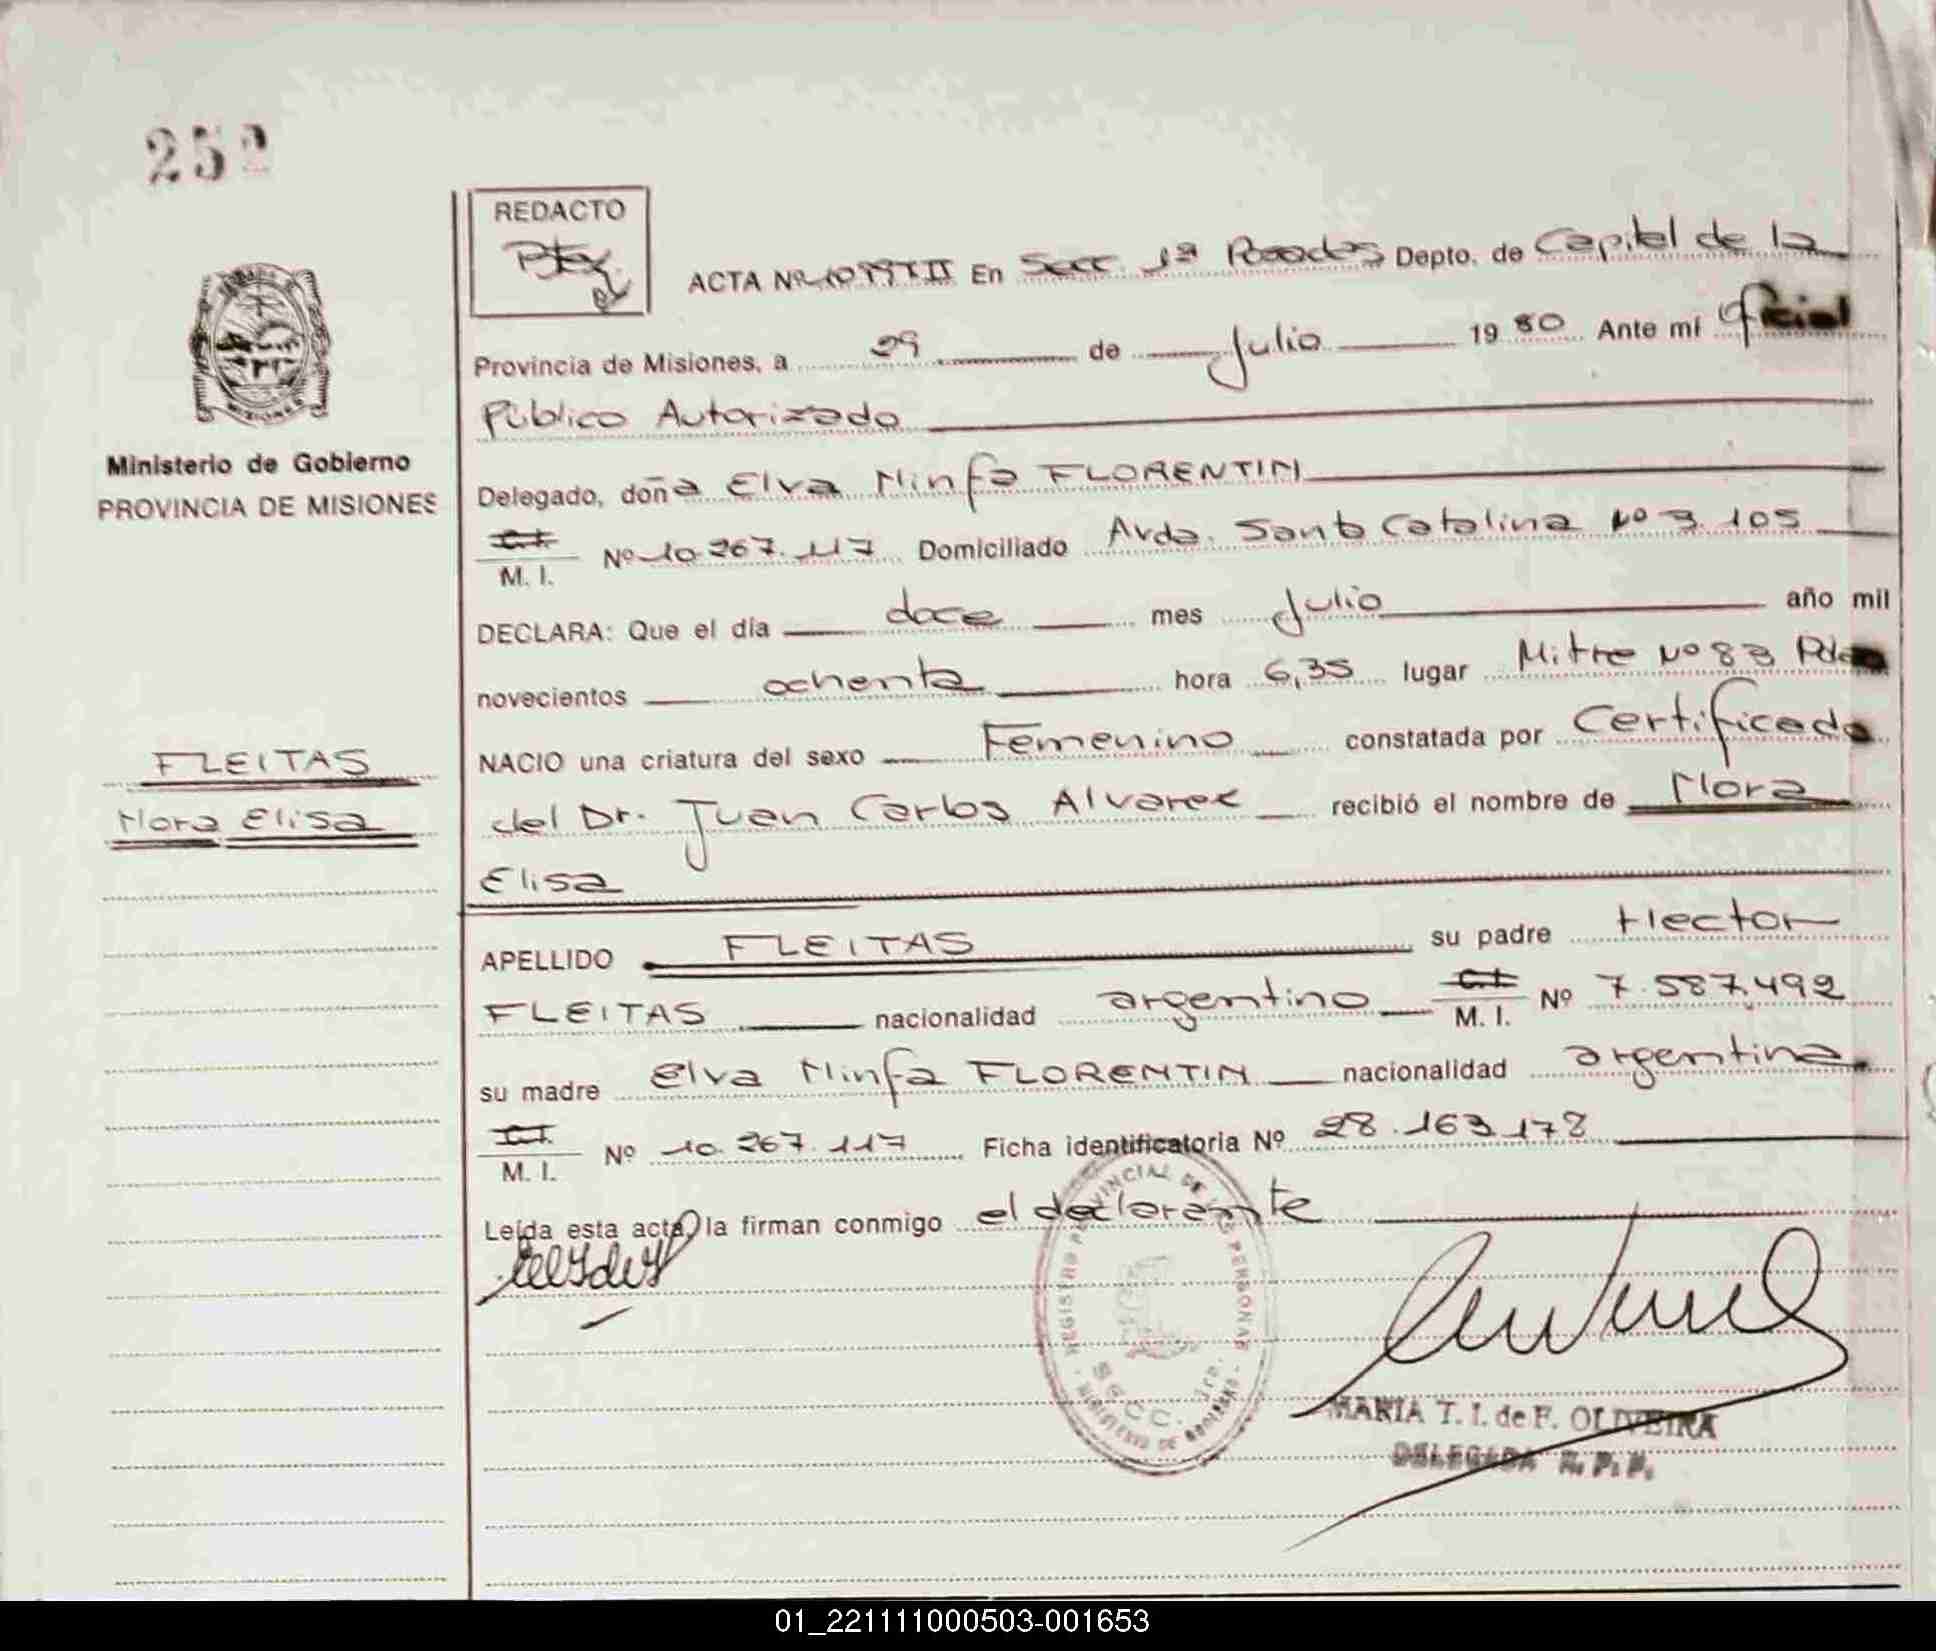 252
REDACTO
ACTA Nº 1099TII En Secc. 1ª Posadas Depto. de Capital de la
Provincia de Misiones, a 29 de Julio 1980 Ante mí Oficial
Público Autorizado
Ministerio de Gobierno
PROVINCIA DE MISIONES
Delegado, doña Elva Ninfa FLORENTIN
C.I.
M. I. Nº 10.267.117 Domiciliado Avda. Santa Catalina Nº 3.105
DECLARA: Que el día doce mes Julio año mil
novecientos ochenta hora 6,35 lugar Mitre Nº 83 Pdas
NACIO una criatura del sexo Femenino constatada por Certificado
del Dr. Juan Carlos Alvarez recibió el nombre de Nora
Elisa
FLEITAS
Nora Elisa
APELLIDO FLEITAS su padre Hector
FLEITAS nacionalidad argentino C.I. M. I. Nº 7.587.492
su madre Elva Ninfa FLORENTIN nacionalidad argentina
C.I.
M. I. Nº 10.267.117 Ficha identificatoria Nº 28.163.178
Leída esta acta, la firman conmigo el declarante
REGISTRO PROVINCIAL DE LAS PERSONAS
SECC. 1ra.
MINISTERIO DE GOBIERNO
MARIA T. I. de F. OLIVEIRA
DELEGADA R. P. P.
01_221111000503-001653